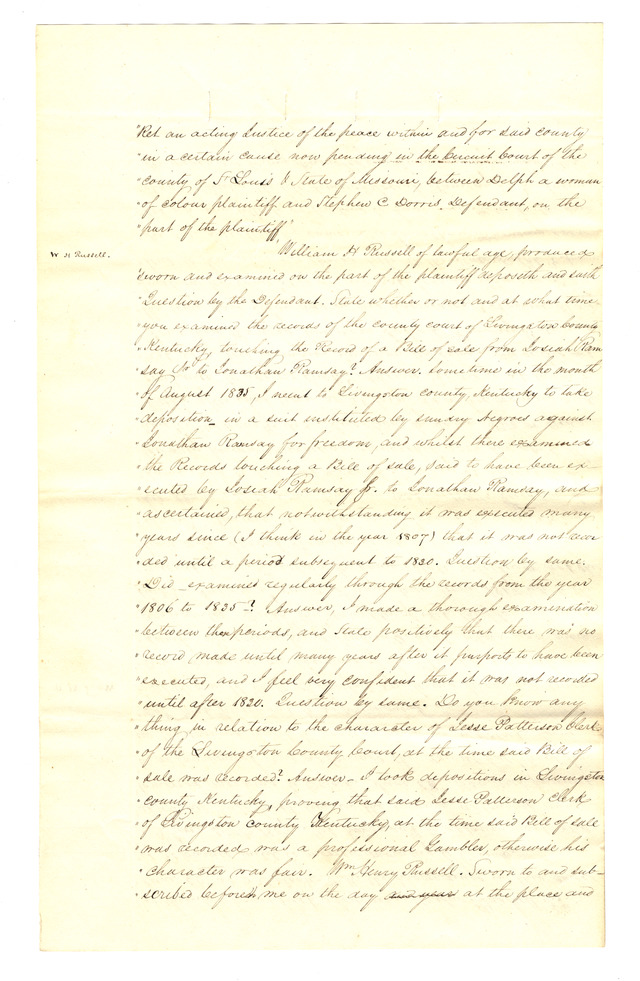 "Ret an acting Justice of the peace within and for said county
"in a certain cause now pending in the Circuit Court of the
"county of St Louis & State of Missouri, between Delph a woman
"of colour plaintiff and Stephen C Dorris, Defendant, on the
"part of the plaintiff"
W H Russell.
William H Russell of lawful age, produced
"sworn and examined on the part of the plaintiff deposeth and saith
"Question by the Defendant. State whether or not and at what time
"you examined the records of the county court of Livingston County
"Kentucky, touching the Record of a Bill of sale from Josiah Ram
"say Jr to Jonathan Ramsay? Answer. Sometime in the month
"of August 1835, I went to Livingston county, Kentucky to take
"deposition in a suit instituted by sundry Negroes against
"Jonathan Ramsay for freedom, and whilst there examined
"the Records touching a Bill of sale, said to have been ex-
"ecuted by Josiah Ramsay Jr. to Jonathan Ramsay, and
"ascertained, that notwithstanding it was executed many
"years since (I think in the year 1807) that it was not recor
"ded until a period subsequent to 1820. Question by same.
"Did examined regularly through the records from the year
"1806 to 1835-? Answer, I made a thorough examination
"between the periods, and State positively that there was no
"record made until many years after it purports to have been
"executed, and I feel very confident that it was not recorded
"until after 1820. Question by same. Do you know any
"thing in relation to the character of Jesse Patterson Clerk
"of the Livingston County Court, at the time said Bill of
"sale was recorded? Answer - I took depositions in Livingston
"county Kentucky, proving that said Jesse Patterson Clerk
"of Livingston county Kentucky, at the time said Bill of sale
"was recorded was a professional Gambler, otherwise his
"character was fair. Wm Henry Russell. Sworn to and sub-
"scribed before me on the day and year at the place and